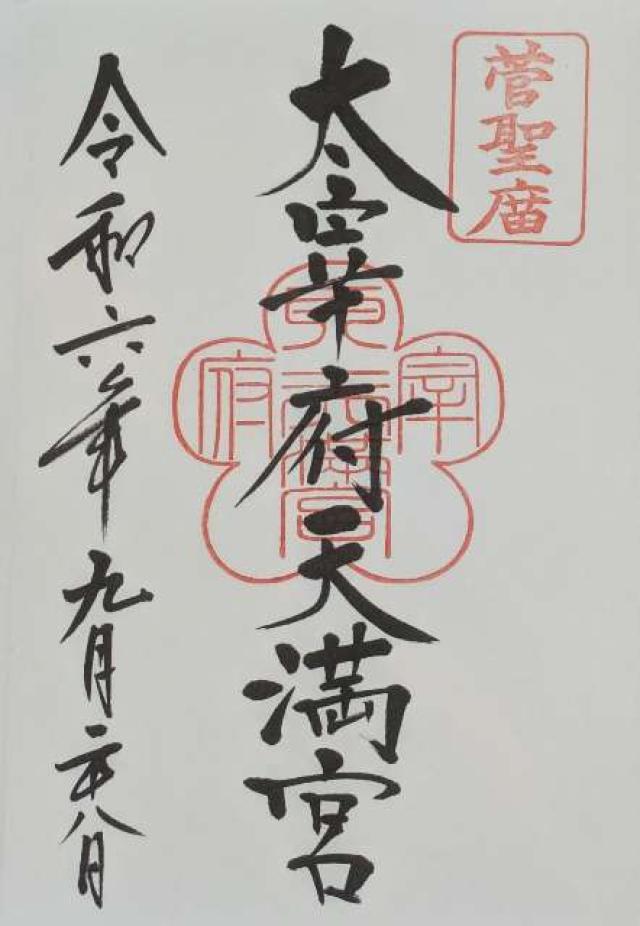 菅聖庿
太宰府天満宮
令和六年九月二十八日